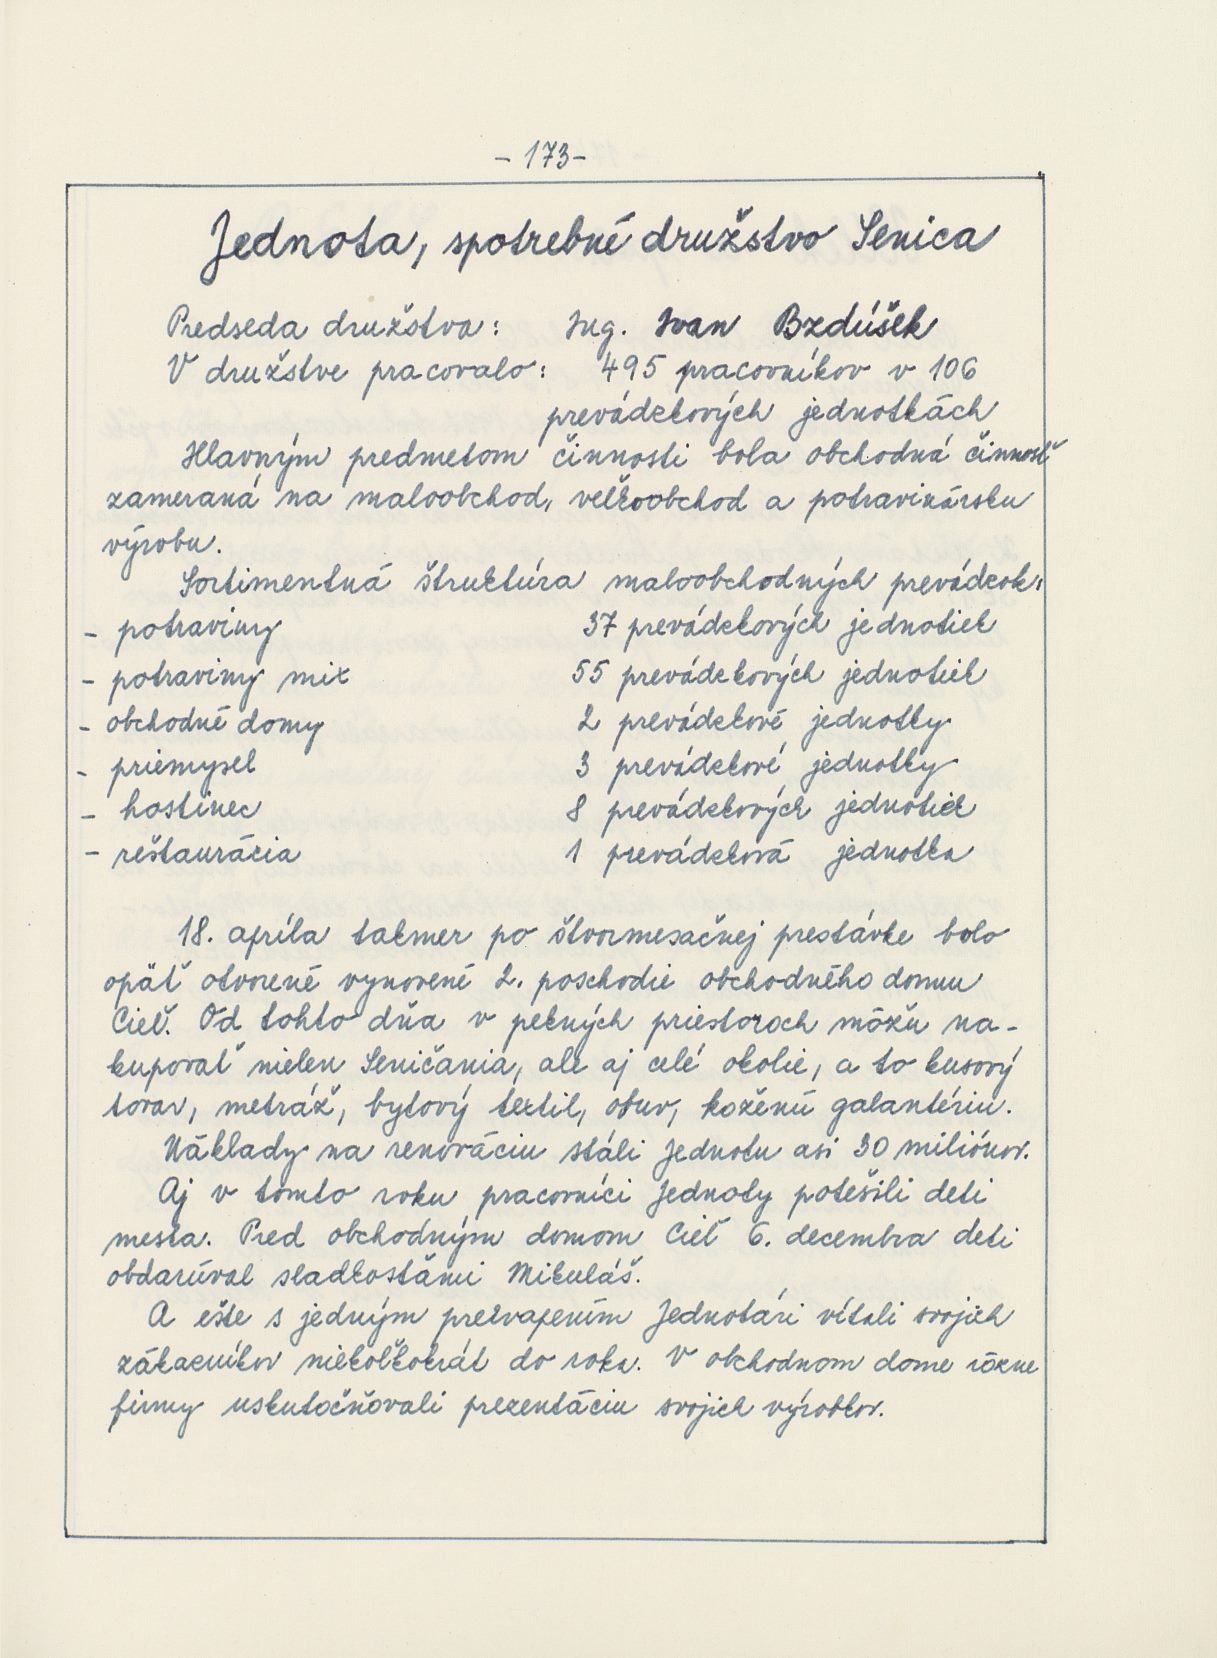 - 173-
Jednota, spotrebné družstvo Senica
Predseda družstva: Ing. Ivan Bzdúšek
V družstve pracovalo: 495 pracovníkov v 106
prevádzkových jednotkách
Hlavným predmetom činnosti bola obchodná činnosť
zameraná na maloobchod, veľkoobchod a potravinársku
výrobu.
Sortimentná štruktúra maloobchodných prevádzok:
- potraviny 37 prevádzkových jednotiek
- potraviny mix 55 prevádzkových jednotiek
- obchodné domy 2 prevádzkové jednotky
- priemysel 3 prevádzkové jednotky
- hostinec 8 prevádzkových jednotiek
- reštaurácia 1 prevádzková jednotka
18. apríla takmer po štvormesačnej prestávke bolo
opäť otvorené vynovené 2. poschodie obchodného domu
Cieľ. Od tohto dňa v pekných priestoroch môžu na-
kupovať nielen Seničania, ale aj celé okolie, a to kusový
tovar, metráž, bytový textil, obuv, koženú galantériu.
Náklady na renováciu stáli Jednotu asi 30 miliónov.
Aj v tomto roku pracovníci Jednoty potešili deti
mesta. Pred obchodným domom Cieľ 6. decembra deti
obdarúval sladkosťami Mikuláš.
A ešte s jedným prekvapením Jednotári vítali svojich
zákazníkov niekoľkokrát do roka. V obchodnom dome rôzne
firmy uskutočňovali prezentáciu svojich výrobkov.